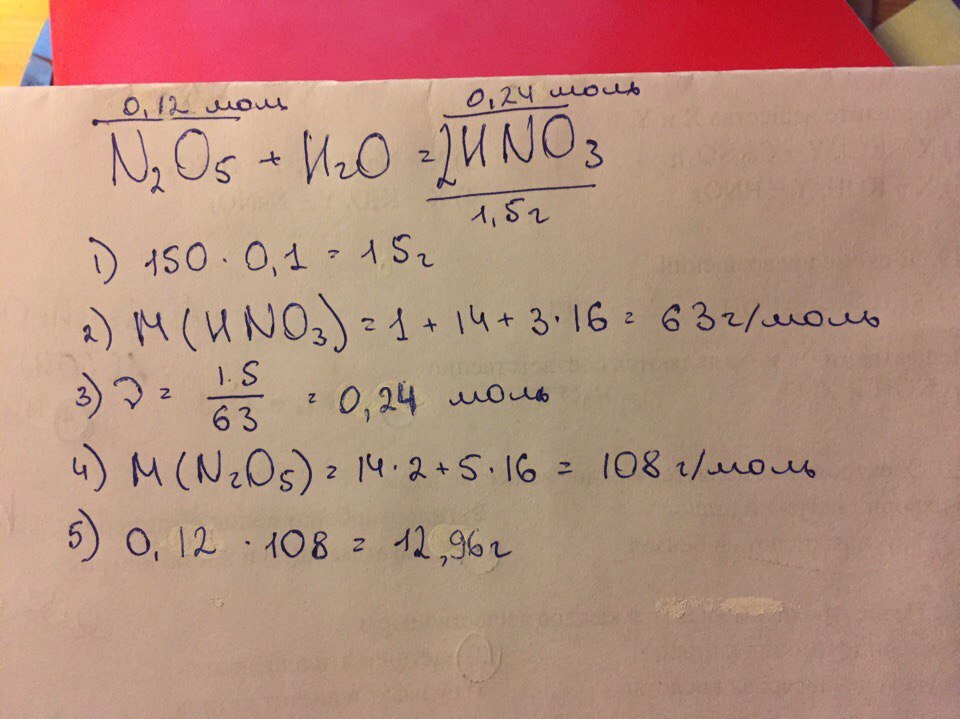 0,12 моль 0,24 моль
N₂O₅ + H₂O = 2HNO₃
1,5г
1) 150 · 0,1 = 15г
2) M(HNO₃) = 1 + 14 + 3·16 = 63г/моль
3) ν = 1.5/63 = 0,24 моль
4) M(N₂O₅) = 14·2 + 5·16 = 108г/моль
5) 0,12 · 108 = 12,96г